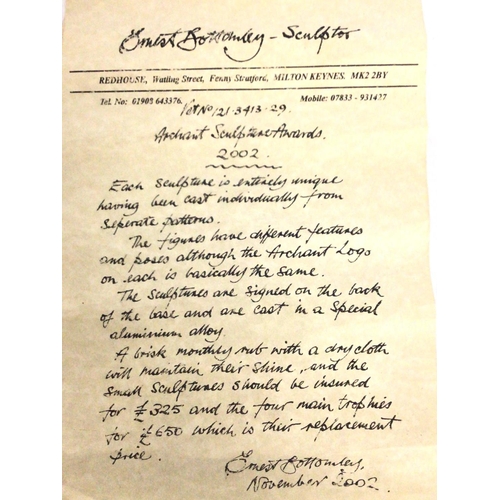 Ernest Bottomley - Sculptor
REDHOUSE, Watling Street, Fenny Stratford, MILTON KEYNES. MK2 2BY
Tel. No: 01908 643376. Mobile: 07833 - 931427
Vat No 121-3413-29.
Archant Sculpture Awards.
2002.
Each sculpture is entirely unique
having been cast individually from
seperate patterns.
The figures have different features
and poses although the Archant Logo
on each is basically the same.
The sculptures are signed on the back
of the base and are cast in a special
aluminium alloy.
A brisk monthly rub with a dry cloth
will maintain their shine, and the
small sculptures should be insured
for £325 and the four main trophies
for £650 which is their replacement
price.
Ernest Bottomley.
November 2002.